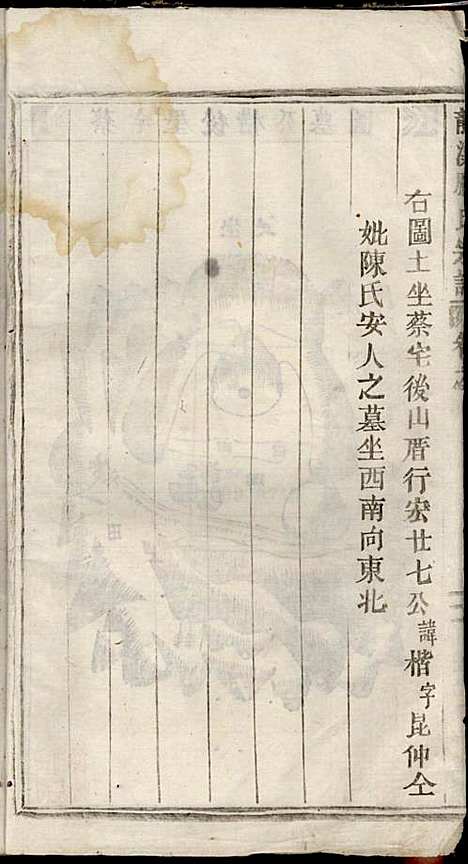 右圖土坐蔡宅後山厝行宏廿七公諱楷字昆仲仝
妣陳氏安人之墓坐西南向東北